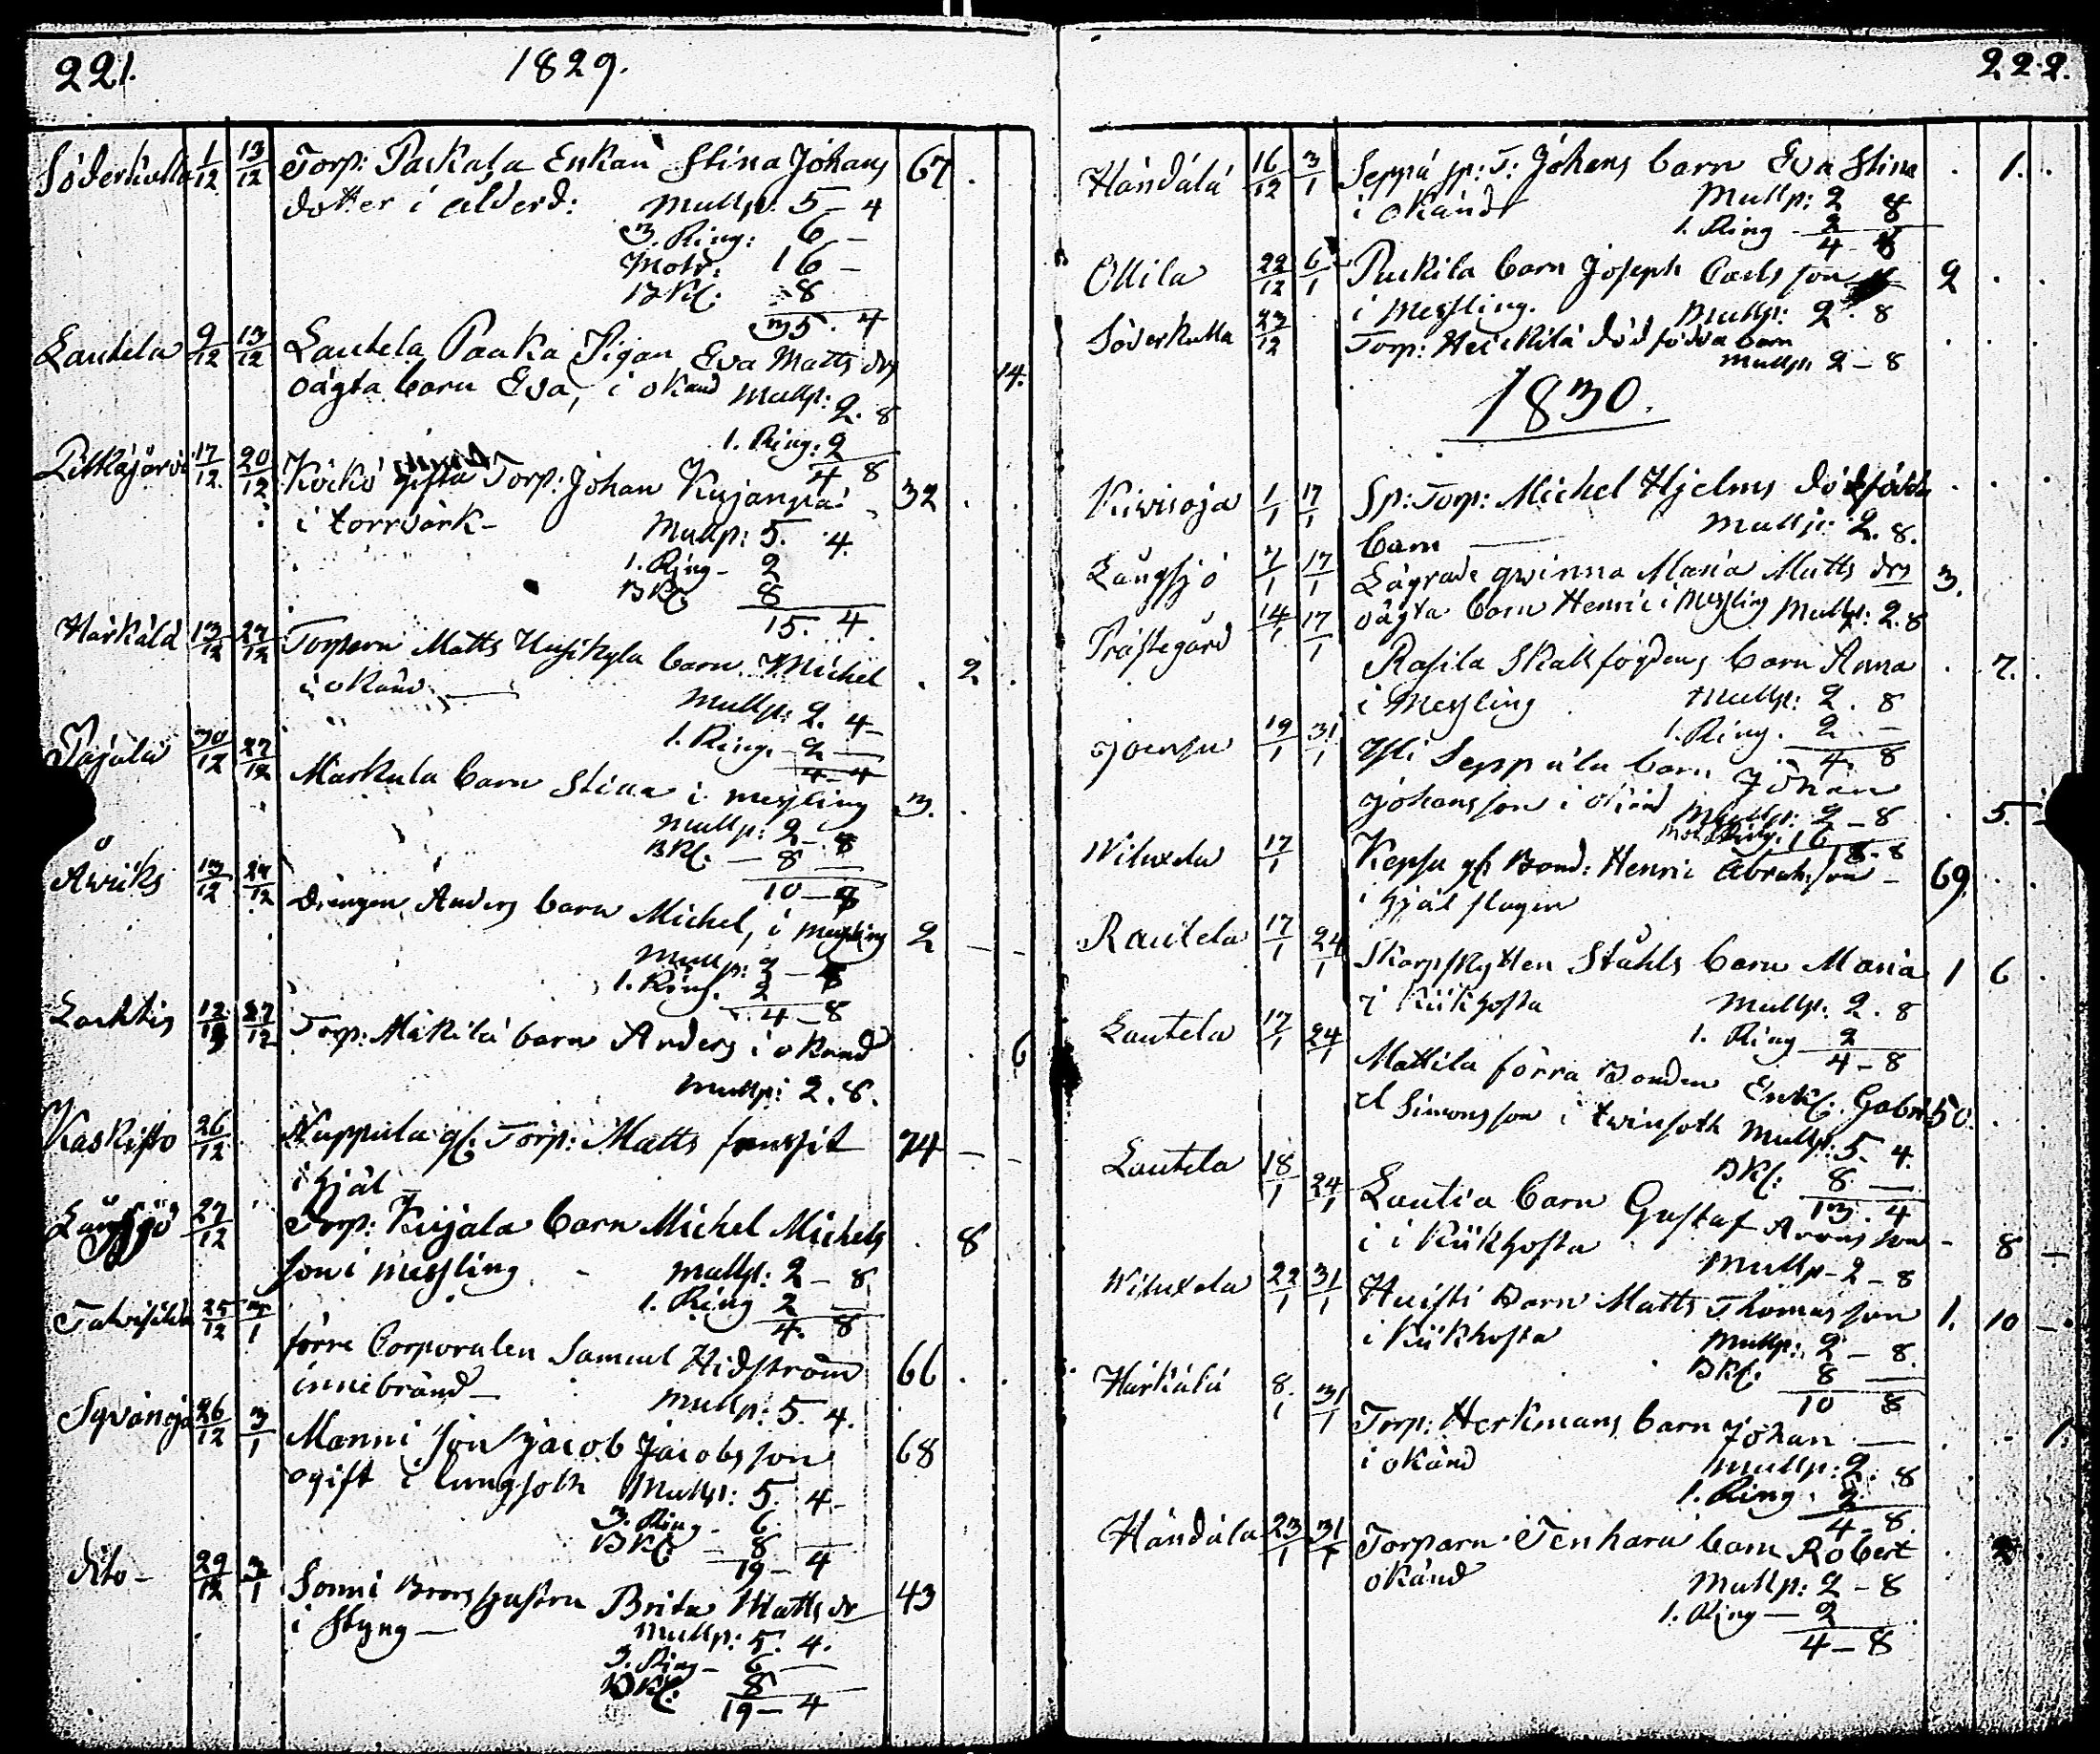 221.
1829.
Söderkulla 1/12 13/12 Torp: Paskala Enkan Stina Johans 67.
dotter i ålderd: Mullp: 5 – 4
3. Ring: 6 –
Motr: 16 –
BKl: 8
35. 4
Lautela 9/12 13/12 Lautela Paaka Pigan Eva Matts drs
oägta barn Eva, i okänd Mullp: 2. 8 14.
1. Ring: 2
4 8
Pitkäjärvi 17/12 20/12 Köckö gifta Torp: Johan Kujanpää 32
i torrvärk – Mullp: 5. 4.
1. Ring – 2
BKl: 8
15. 4.
Härkälä 13/12 27/12 Torparn Matts Uusikyla barn Michel . 2 .
i okänd – Mullp: 2. 4 –
1. Ring. – 2 –
4 – 4
Pajula 20/12 27/12 Markula barn Stina i messling 3.
Mullp: 2 – 8
BKl: – 8 –
10 – 8
Åwiks 13/12 27/12 Drängen Anders barn Michel, i messling 2 – –
Mullp: 2 – 8
1. Ring. 2
4 – 8
Lachtis 12/12 27/12 Torp: Mäkilä barn Anders i okänd . . 6
Mullp: 2. 8.
Kaskisto 26/12 Nuppula gl. Torp: Matts 74 – –
ihjäl –
Långsjö 27/12 Torp: Kujala barn Michel Michels . 8
son i messling – Mullp: 2 – 8
1. Ring 2 –
4. 8
25/12 förre Corporalen Samuel Hidström 66 . .
innebränd – Mullp: 5. 4.
Syvänoja 26/12 3/1 Manni son Jacob Jacobsson 68
ogift i lungsoth Mullp: 5. 4 –
3. Ring – 6.
BKl: – 8 –
19 – 4
dito – 29/12 3/1 Sonni Brors hustru Brita Matts dr 43
i styng – Mullp: 5. 4.
3. Ring – 6 –
BKl: 8
19 – 4
222.
Händälä 16/12 3/1 Seppä sp: T: Johans barn Eva Stina . 1. .
i okändt Mullp: 2 8
1. Ring – 2
4 – 8
Ollila 22/12 6/1 Puckila barn Joseph Carlsson 2 . .
i Messling. Mullp: 2. 8
Söderkulla 23/12 Torp: Heickilä dödfödda barn . . .
Mullp: 2 – 8
1830.
Kivisoja 1/1 17/1 Sp: Torp: Michel Hjelms dödfödda . . .
barn – Mullp: 2. 8.
Långsjö 7/1 17/1 Lägrade qwinna Maria Matts drs 3.
oägta barn Henric i Messling Mullp: 2. 8
Prästegård 14/1 17/1 Rasila Skallfogdens barn Anna . 7. .
i Messling Mullp: 2. 8
1. Ring. 2 –
4. 8
Joensu 19/1 31/1 Yli Seppälä barn Johan
Johansson i okänd Mullp: 2 – 8 . 5. –
16
18. 8
Wiluxela 17/1 Kepsu gl. Bond: Henric Abrahsson – 69. . .
ihjäl slagen
Rautela 17/1 24/1 Skarpskytten Ståhls barn Maria 1 6 .
i Kikhosta Mullp: 2. 8
1. Ring 2
4 – 8
Lautela 17/1 24/1 Mattila förra Bonden Enkl: Gabri 50. .
el Simonsson i twinsoth Mullp: 5. 4.
BKl: 8 –
13. 4
Lautela 18/1 24/1 Lautia barn Gustaf Aronsson – 8 –
i i Kikhosta Mullp – 2 – 8
Wiluxela 22/1 31/1 Huisti Barn Matts Thomasson 1. 10 – .
i Kikhosta Mullp: 2 – 8.
BKl: 8 –
10 8
Härkälä 8./1 31/1 Torp: Herkmans barn Johan – . – 1.
i okänd Mullp: 2. 8
1. Ring. 2
4 – 8.
Händälä 23/1 31/1 Torparn Tenhara barn Robert . 2 .
okänd Mullp: 2 – 8
1. Ring – 2
4 – 8